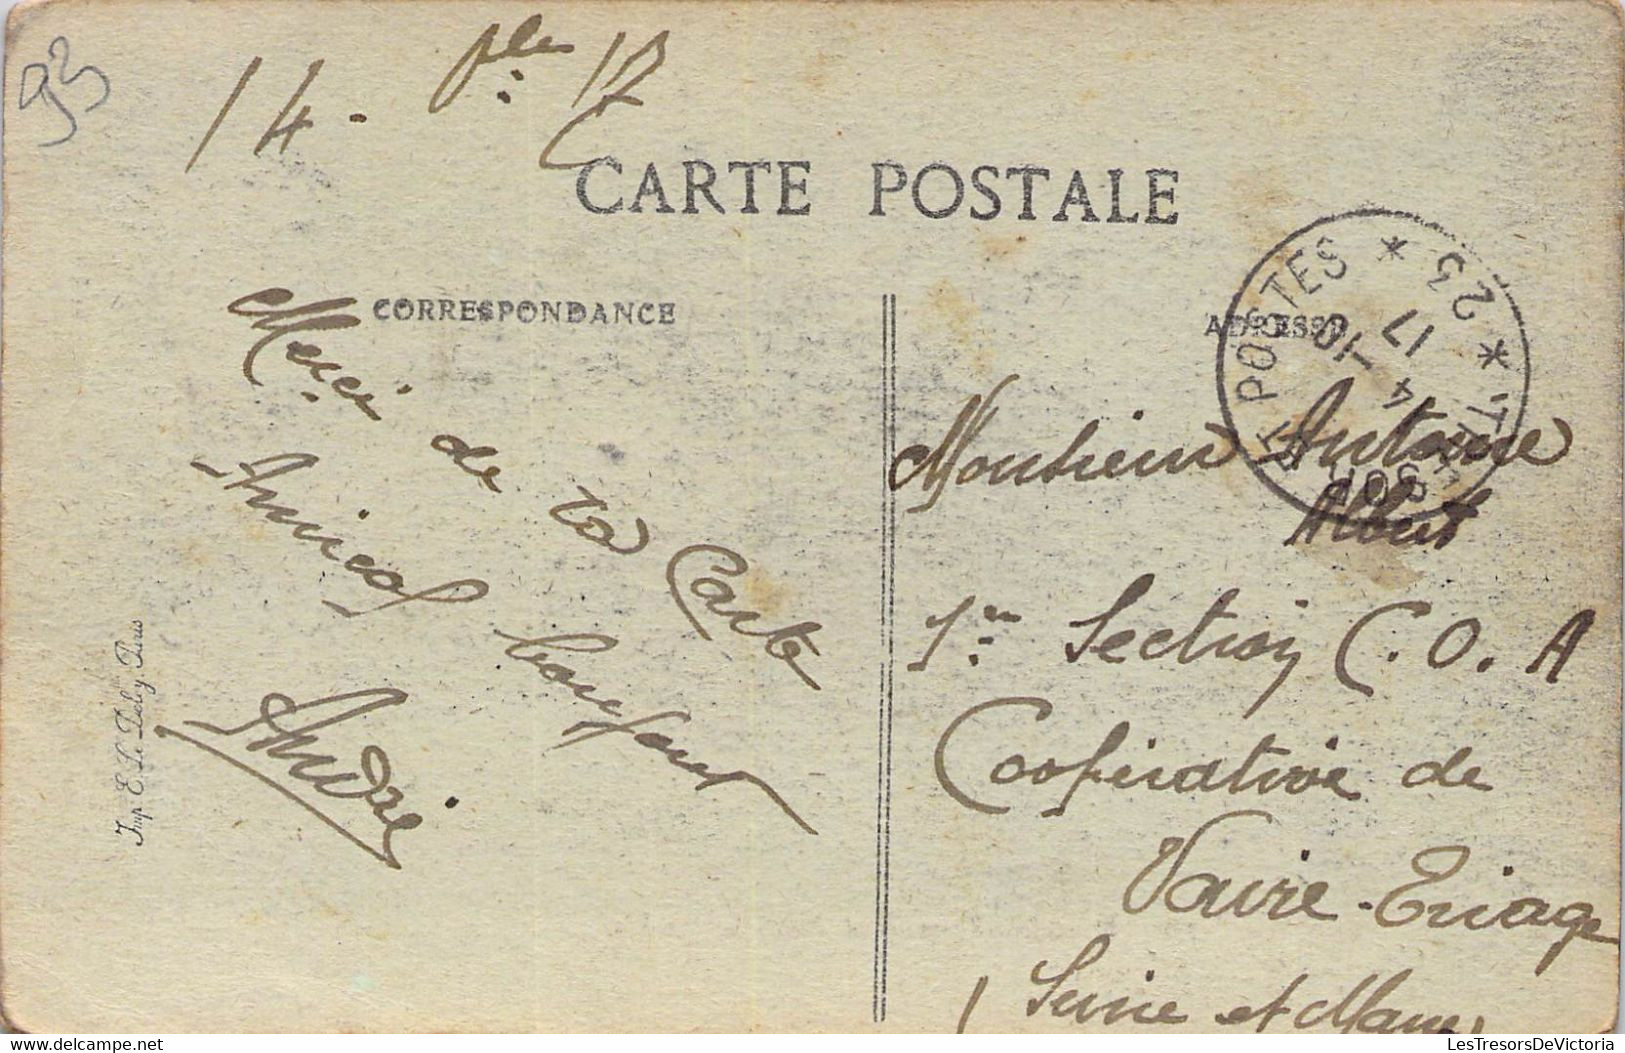 93
14 - 17
CARTE POSTALE
CORRESPONDANCE
ADRESSE
TRÉSOR ET POSTES * 23 *
4 - 10
17
Merci de ta Carte
Amical bonjour
André
Monsieur Antoine
Albert
1re Section C.O.A
Coopérative de
Vaire-Triage
(Seine et Marne)
Imp. E. Le Deley, Paris
LesTresorsDeVictoria